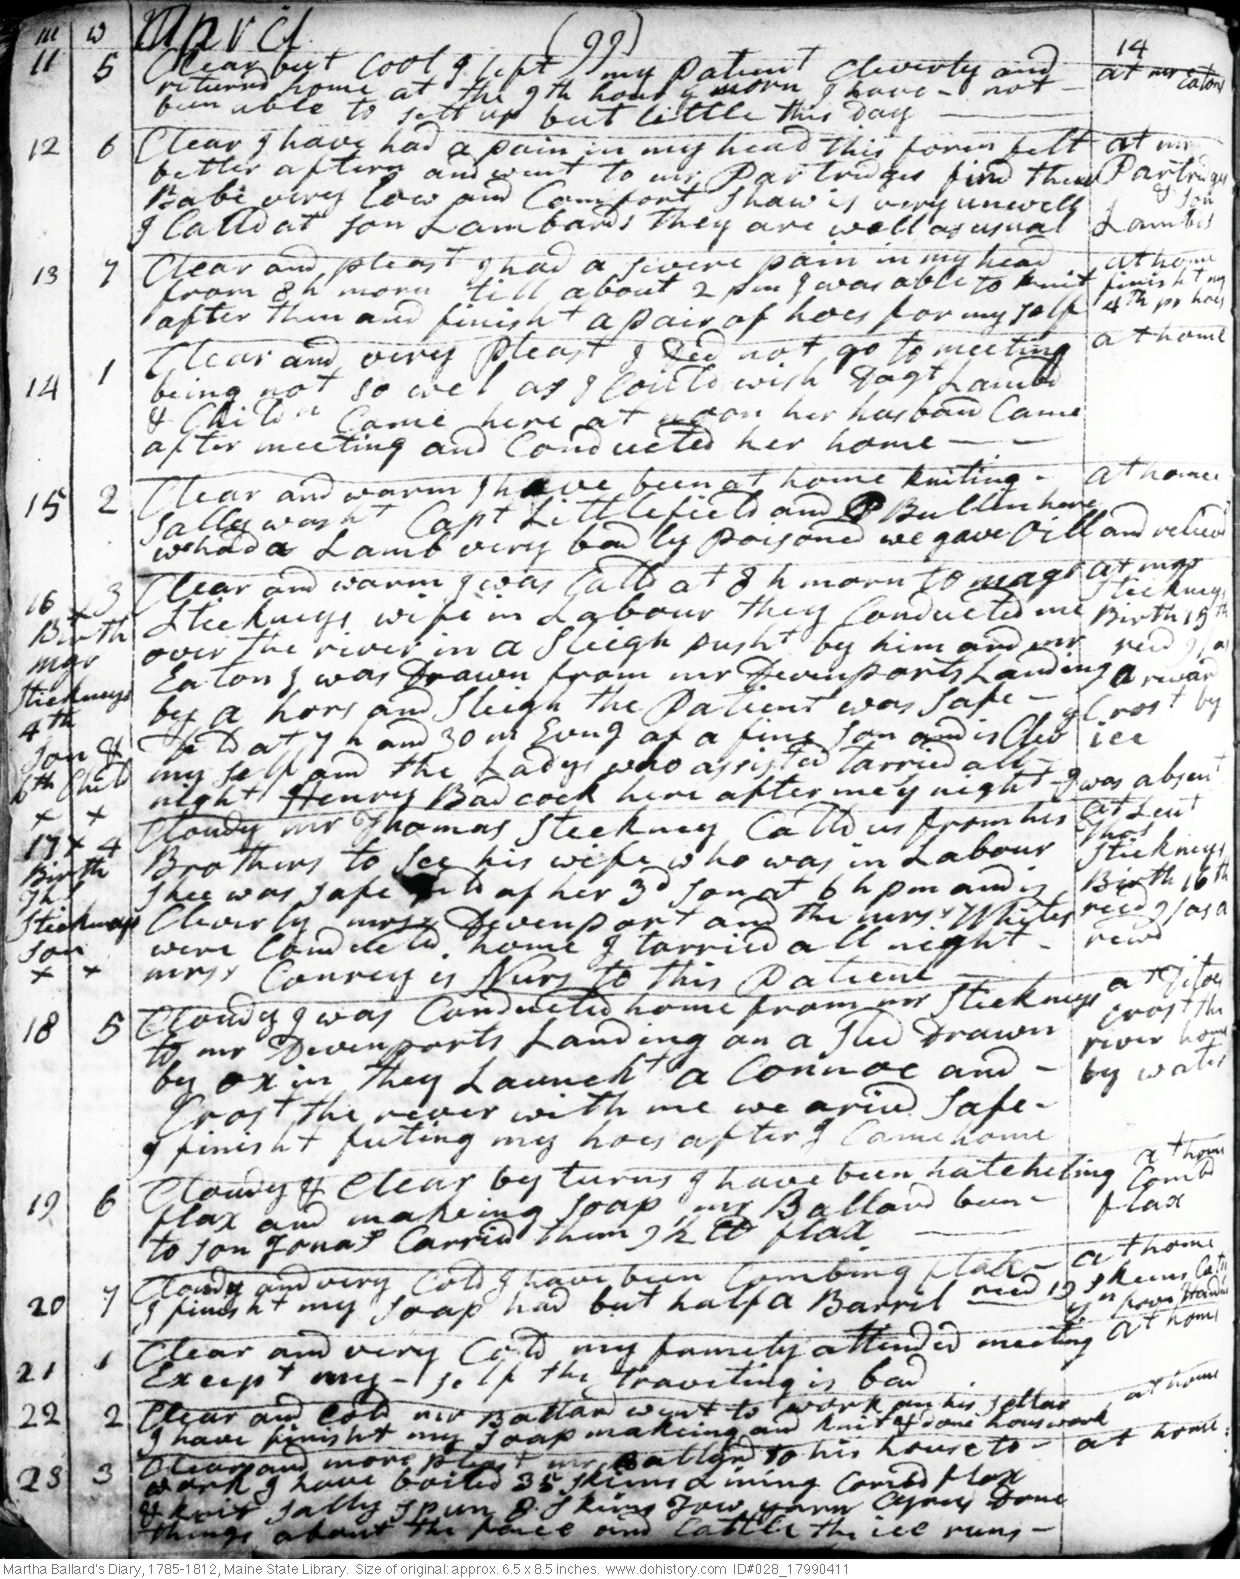 m w April (99) 14
11 5 Clear but Cool I left my patient Cleverly and at mr Eatons
returnd home at the 9th hour morn I have not
been able to sett up but little this Day
12 6 Clear I have had a pain in my head this foren felt at mr
better aftern and went to mr Partridges find their Partridges
Babe very low and Comfort Shaw is very unwell & Son
I Calld at Son Lambards they are well as usual Lambds
13 7 Clear and pleast I had a severe pain in my head at home
from 8 h morn till about 2 pm I was able to knit finisht my
after then and finisht a pair of hoes for my self 4th pr hoes
14 1 Clear and very Pleast I Did not go to meeting at home
being not so wel as I Could wish Dagt Lambd
& Childn Came here at noon her husban Came
after meeting and Conducted her home
15 2 Clear and warm I have been at home kniting at home
Sally washt Capt Littlefield and P Bullin here
who had a Lamb very badly poisoned we gave Oil and relievd
16 3 Clear and warm I was Calld at 8 h morn to magr at mgr
Birth Stickneys wife in Labour they Conducted me Stickneys
mgr over the river in a Sleigh pusht by him and mr Birth 15th
Stickneys Eaton I was Drawn from mr Devenports Landing recd
4th by a hors and Sleigh the Patient was Safe a reward
Son & Dld at 7 h and 30 m Evng of a fine Son and is Clev I Crost by
6th Child my self and the Ladys who assisted tarried all ice
x x night Henry Badcock here after me y night I was absent
17 x 4 Cloudy mr Thomas Stickney Calld us from his at Leut
Birth Brothers to See his wife who was in Labour Thos Stickneys
Ths Shee was Safe Dld of her 3d Son at 6 h pm and is Birth 16th
Stickneys Cleverly mrss Devenport and the mrss Whites recd as a
Son were Conducted home I tarried all night rewd
x x mrss Conrey is Nurs to this Patient
18 5 Cloudy I was Conducted home from mr Stickneys at Ditoes
to mr Devenports Landing on a Sled Drawn Crost the
by oxin they Launcht a Connoe and river home
Crost the river with me we arivd Safe by water
I finisht futing my hoes after I Came home
19 6 Cloudy & Clear by turns I have been hatcheling at home
flax and makeing Soap mr Ballard been Combd
to Son Jonas Carried them flax flax
20 7 Cloudy and very Cold I have been Combing flax at home
I finisht my Soap had but half a Barril recd 19 Skeins
21 1 Clear and very Cold my famely attended meeting at home
Except my self the Traveling is bad
22 2 Clear and Cold mr Ballard went to work on his Sellar at home
I have finisht my Soap makeing and knit & done houswork
23 3 Clear and more pleast mr Ballard to his house to at home
work I have boiled 35 Skeins Lining Combd flax
& knit Sally Spun 8 Skeins Tow yarn Cyrus Done
things about the fence and Cattle the ice runs
Martha Ballard's Diary, 1785-1812, Maine State Library. Size of original: approx. 6.5 x 8.5 inches. www.dohistory.com ID#028_17990411